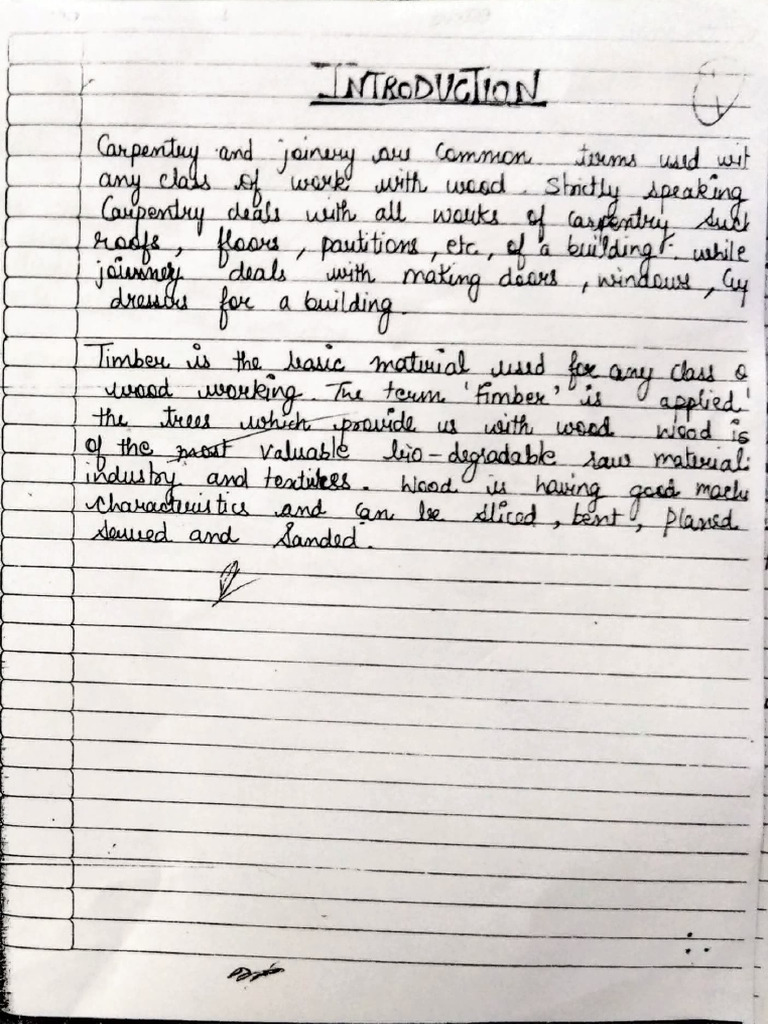 INTRODUCTION
Carpentry and joinery are common terms used wit
any class of work with wood. Strictly speaking
Carpentry deals with all works of carpentry such
roofs, floors, partitions, etc, of a building. while
joinney deals with making doors, windows,
dressors for a building.
Timber is the basic material used for any class o
wood working. The term 'timber' is applied
the trees which provide us with wood wood is
of the most valuable bio-degradable raw material
industry and textiles. Wood is having good mech
characteristics and can be sliced, bent, planed
sawed and Sanded.